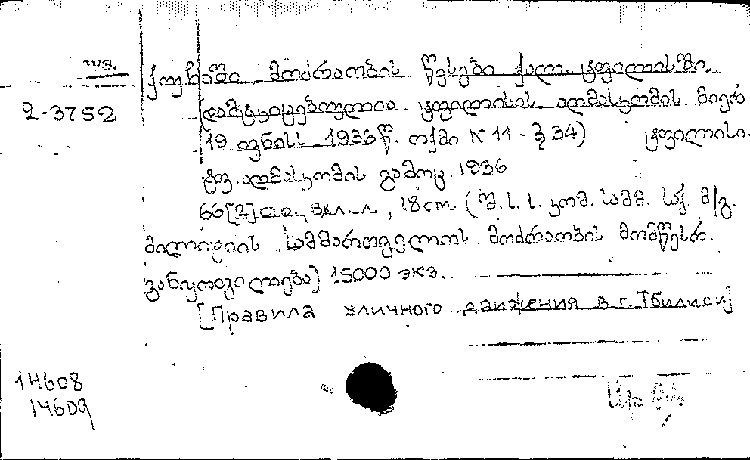 ქუჩაში მოძრაობის წესები ქალ. ტფილისში.
2-3752
[დამტკიცებულია ტფილისის აღმასკომის მიერ
19 ივნისს 1936 წ. ოქმი N 11 - § 34) ტფილისი.
ტფ. აღმასკომის გამოც. 1936
66 [2] с., 18 cm. (შ. ს. ს. კომ. საბჭ. საქ. მ/გ.
მილიციის სამმართველოს მოძრაობის მომწესრ.
განყოფილება] 15000 экз.
[Правила уличного движения в г. Тбилиси]
14608
14609